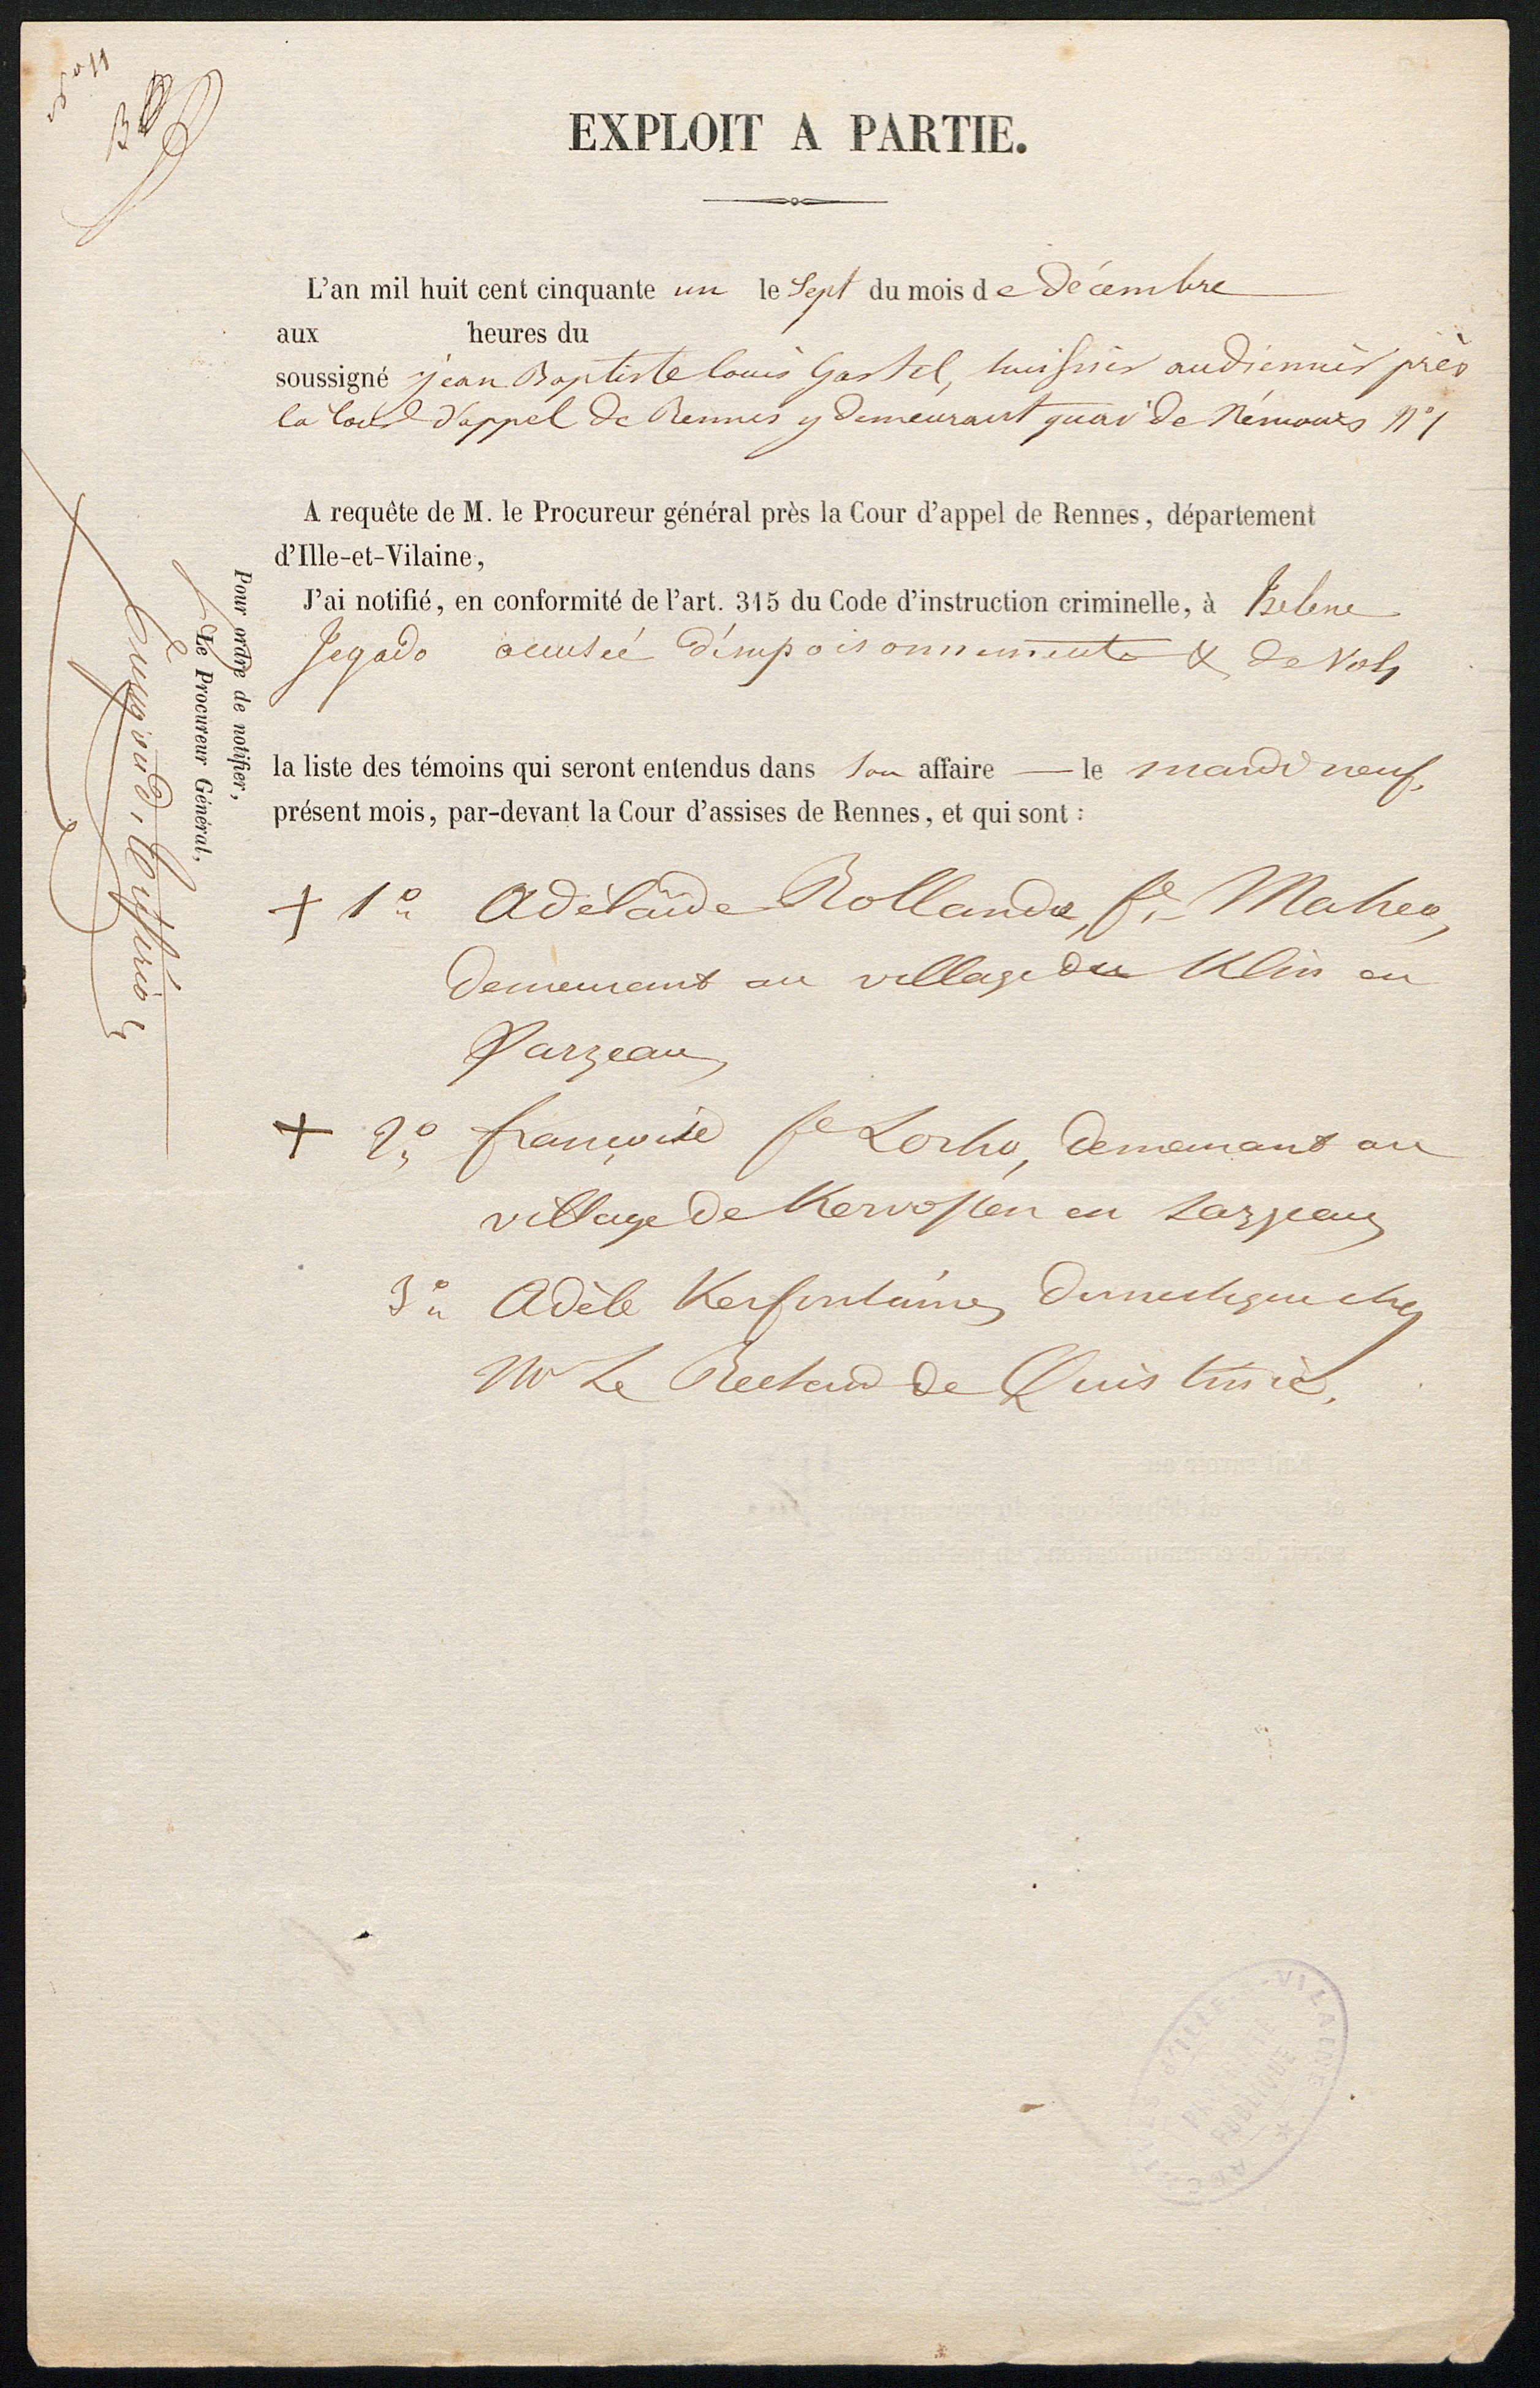 N° 11
EXPLOIT A PARTIE.
L'an mil huit cent cinquante un le Sept du mois de décembre
aux heures du
soussigné jean Baptiste louis Gastel, huissier audiencier près
la Cour d'appel de Rennes y demeurant quai de Némours N° 1
A requête de M. le Procureur général près la Cour d'appel de Rennes, département
d'Ille-et-Vilaine,
J'ai notifié, en conformité de l'art. 315 du Code d'instruction criminelle, à helene
Jegado accusée d'empoisonnements & de Vols
la liste des témoins qui seront entendus dans son affaire — le mardi neuf
présent mois, par-devant la Cour d'assises de Rennes, et qui sont :
+ 1° Adélaïde Rollando, fe Maheo,
demeurant au village du Klin en
Sarzeau
+ 2° françoise fe Lorho, demeurant au
village de Kervossen en Sarzeau
3° Adèle Kerfontaine, domestique chez
Mr Le Recteur de Quistinic.
Pour ordre de notifier,
Le Procureur Général,
ARCHIVES D'ILLE-&-VILAINE
PUBLIQUE